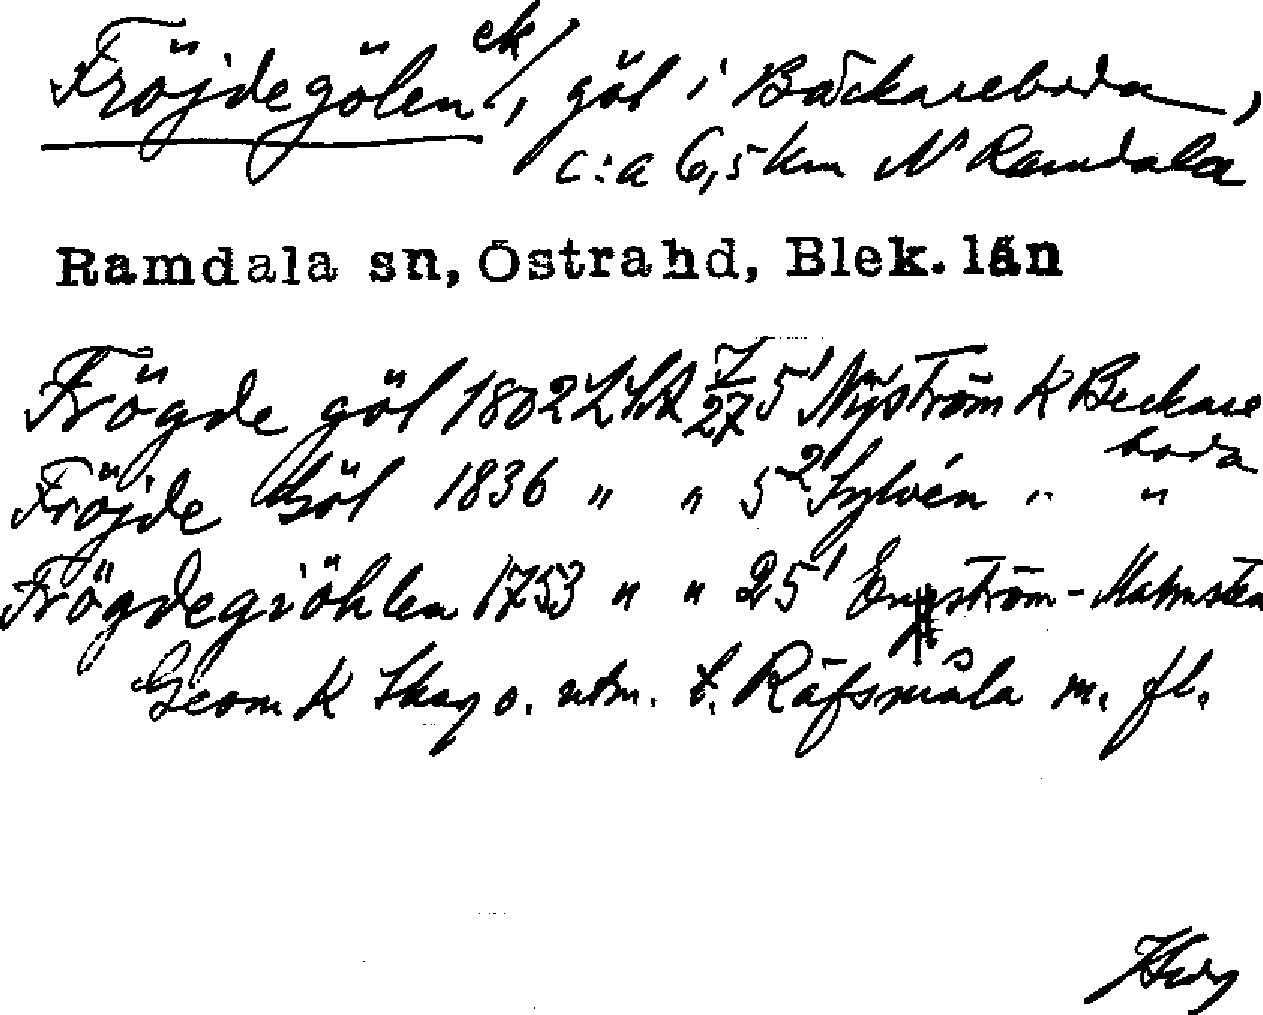 Fröjdegölen ek/, göl i Bäckareboda,
c:a 6,5 km N Ramdala
Ramdala sn, Östra hd, Blek. län
Frögde göl 1802 LSA 7/27 5¹ Nyström K Beckare
boda
Fröjde Göl 1836 " " 5² Sylvén " "
Frögdegiöhlen 1753 " " 25¹ Engström - Malmsten
Geom K Skog o. utm. t. Räfsmåla m. fl.